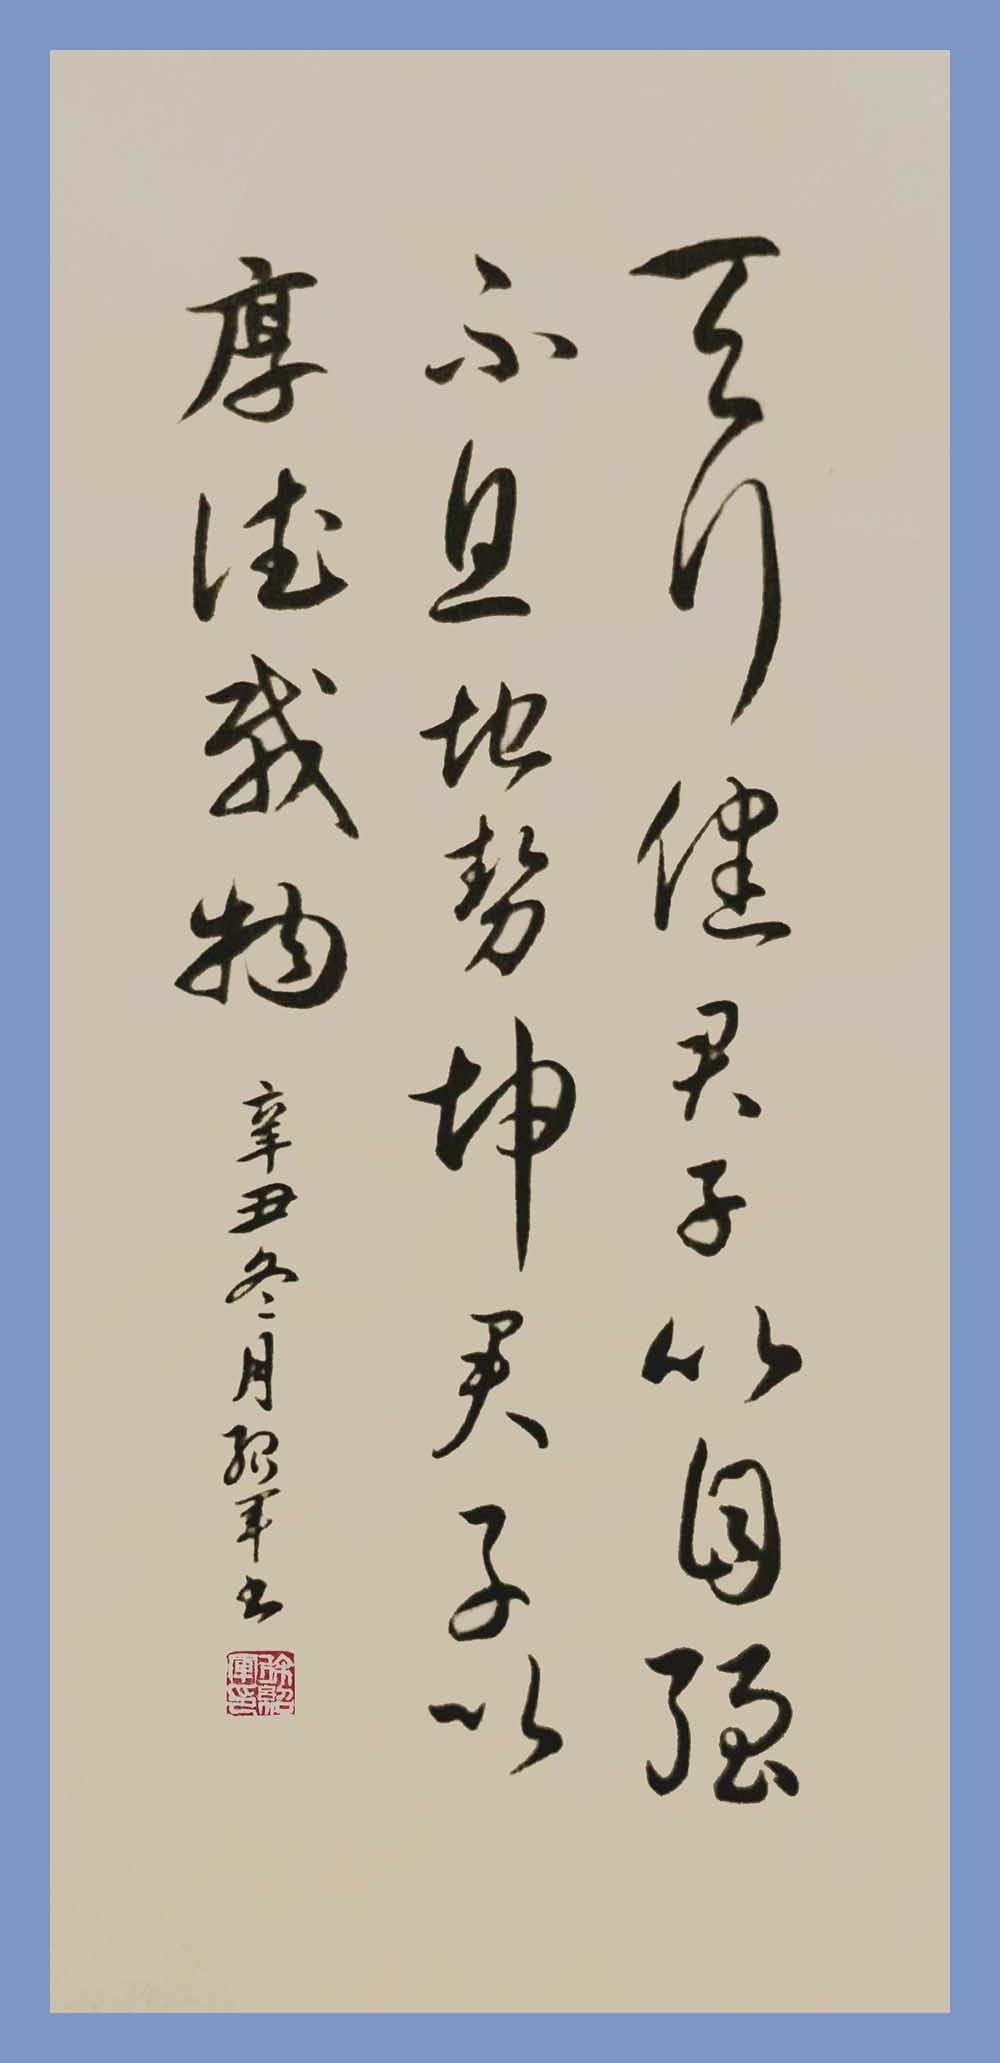 天行健君子以自强
不息地势坤君子以
厚德载物
辛丑冬月绍军书
徐紹軍印